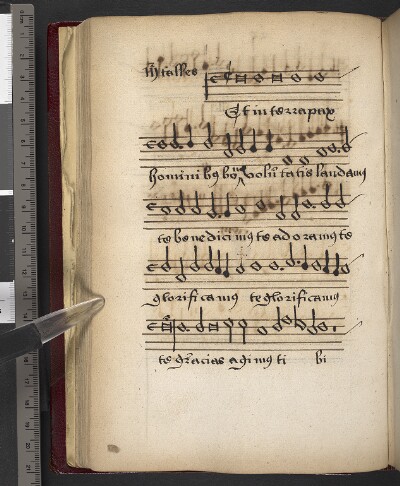 Et in terra pax
homini bus bone volun tatis laudamus
te bene dici mus te ad oramus te
glorifi camus te glorificamus
te gracias agimus ti bi